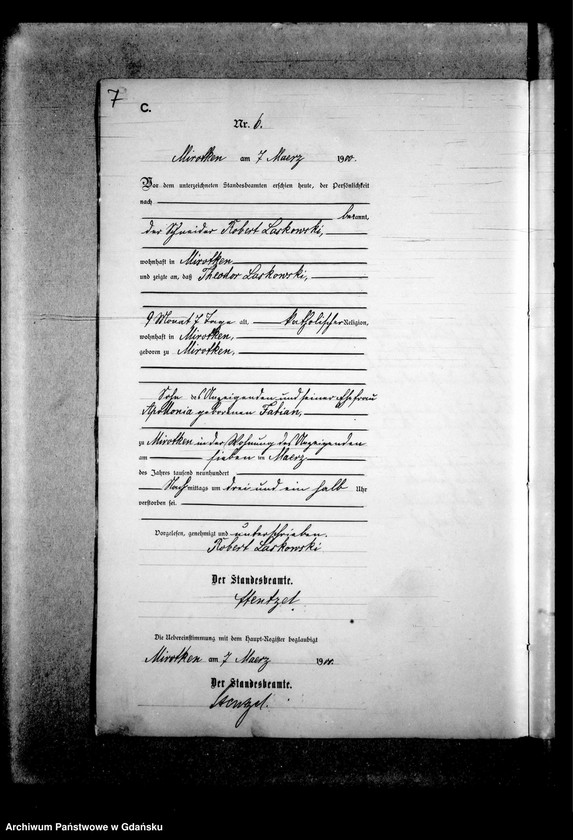 7
C.
Nr. 6.
Mirotken am 7 Maerz 1900.
Vor dem unterzeichneten Standesbeamten erschien heute, der Persönlichkeit
nach
bekannt,
der Schneider Robert Laskowski,
wohnhaft in Mirotken
und zeigte an, daß Theodor Laskowski,
9 Monat 7 Tage alt, katholischer Religion,
wohnhaft in Mirotken,
geboren zu Mirotken,
Sohn des Anzeigenden und seiner Ehefrau
Apollonia geborenen Fabian,
zu Mirotken in der Wohnung des Anzeigenden
am sieben ten Maerz
des Jahres tausend neunhundert
Nachmittags um drei und ein halb Uhr
verstorben sei.
Vorgelesen, genehmigt und unterschrieben.
Robert Laskowski
Der Standesbeamte.
Stentzel
Die Uebereinstimmung mit dem Haupt-Register beglaubigt
Mirotken am 7 Maerz 1900.
Der Standesbeamte.
Archiwum Państwowe w Gdańsku